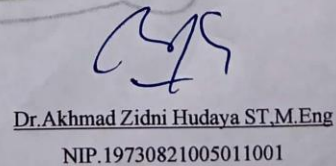 Dr.Akhmad Zidni Hudaya ST,M.Eng
NIP.19730821005011001